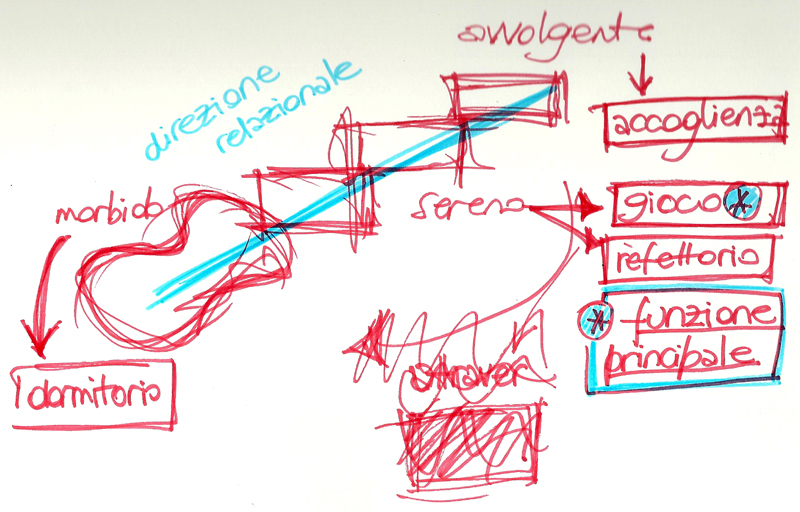 avvolgente
accoglienza
direzione
relazionale
morbido
sereno
gioco *
refettorio
* funzione
principale
dormitorio